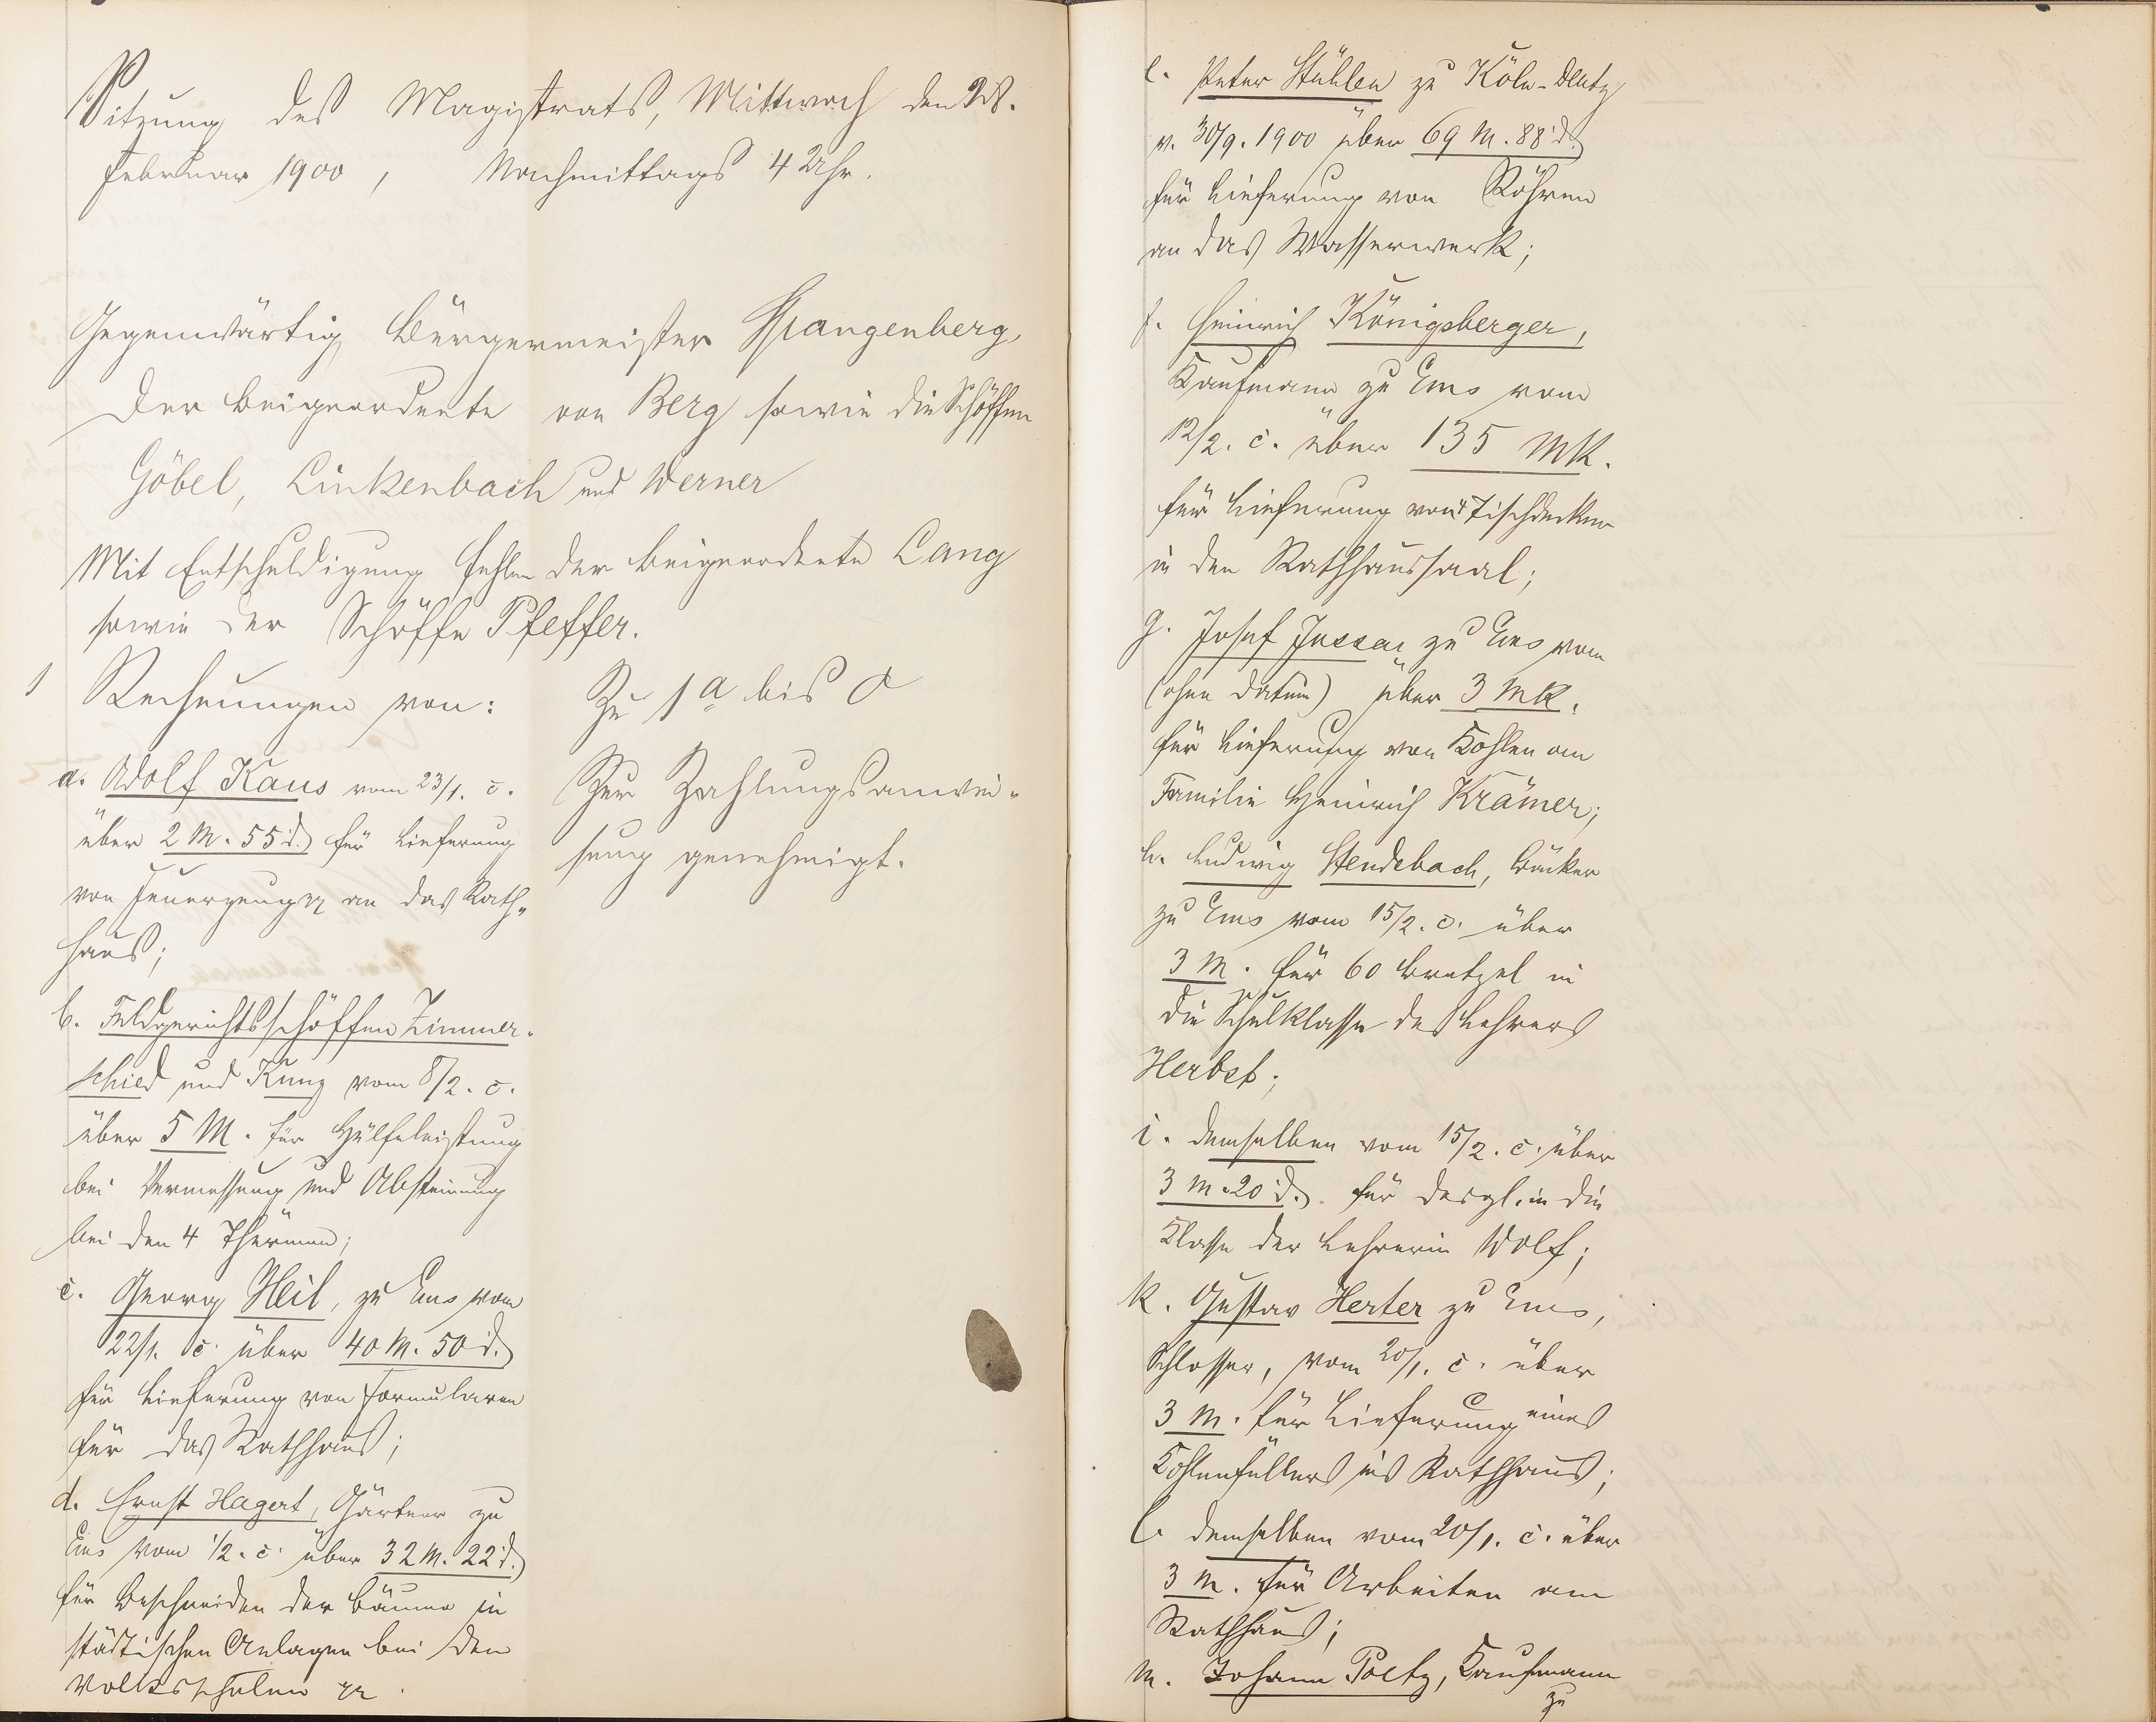 Sitzung des Magistrats, Mittwoch den 28.
Februar 1900, Nachmittags 4 Uhr.
Gegenwärtig Bürgermeister Spangenberg,
der Beigeordnete von Berg sowie die Schöffen
Göbel, Linkenbach und Werner
Mit Entschuldigung fehlen der Beigeordnete Lang
sowie der Schöffe Pfeffer.
1 Rechnungen von:
a. Adolf Kaus vom 23/1. c.
über 2 M. 55 d. für Lieferung
von Feuerzeug pp an das Rath-
haus;
b. Feldgerichtsschöffen Zimmer-
schied und Kunz vom 8/2. c.
über 5 M. für Hülfeleistung
bei Vermessung und Absteinung
bei den 4 Thürmen;
c. Georg Heil, zu Ems vom
22/1. c. über 40 M. 50 d.
für Lieferung von Formularen
für das Rathhaus;
d. Ernst Hagert, Gärtner zu
Ems vom 1/2. c. über 32 M. 22 d.
für Beschneiden der Bäume in
städtischen Anlagen bei den
Volksschulen pp.
Zu 1 a bis d
Zur Zahlungsanwei-
sung genehmigt.
e. Peter Stühlen zu Köln-Deutz
v. 30/9. 1900 über 69 M. 88 d.
für Lieferung von Röhren
an das Wasserwerk;
f. Heinrich Königsberger,
Kaufmann zu Ems vom
12/2. c. über 135 Mk.
für Lieferung von Tischdecken
in den Rathhaussaal;
g. Josef zu Ems vom
(ohne Datum) über 3 Mk.
für Lieferung von Kohlen an
Familie Heinrich Krämer;
h. Ludwig Stendebach, Bäcker
zu Ems vom 15/2. c. über
3 M. für 60 Bretzel in
die Schulklasse des Lehrers
Herbst;
i. demselben vom 15/2. c. über
3 M. 20 d. für desgl. in die
Klasse der Lehrerin Wolf;
k. Gustav Herter zu Ems,
Schlosser, vom 20/1. c. über
3 M. für Lieferung eines
Kohlenfüllers ins Rathhaus;
l. demselben vom 20/1. c. über
3 M. für Arbeiten am
Rathhaus;
m. Johann Poetz, Kaufmann
zu